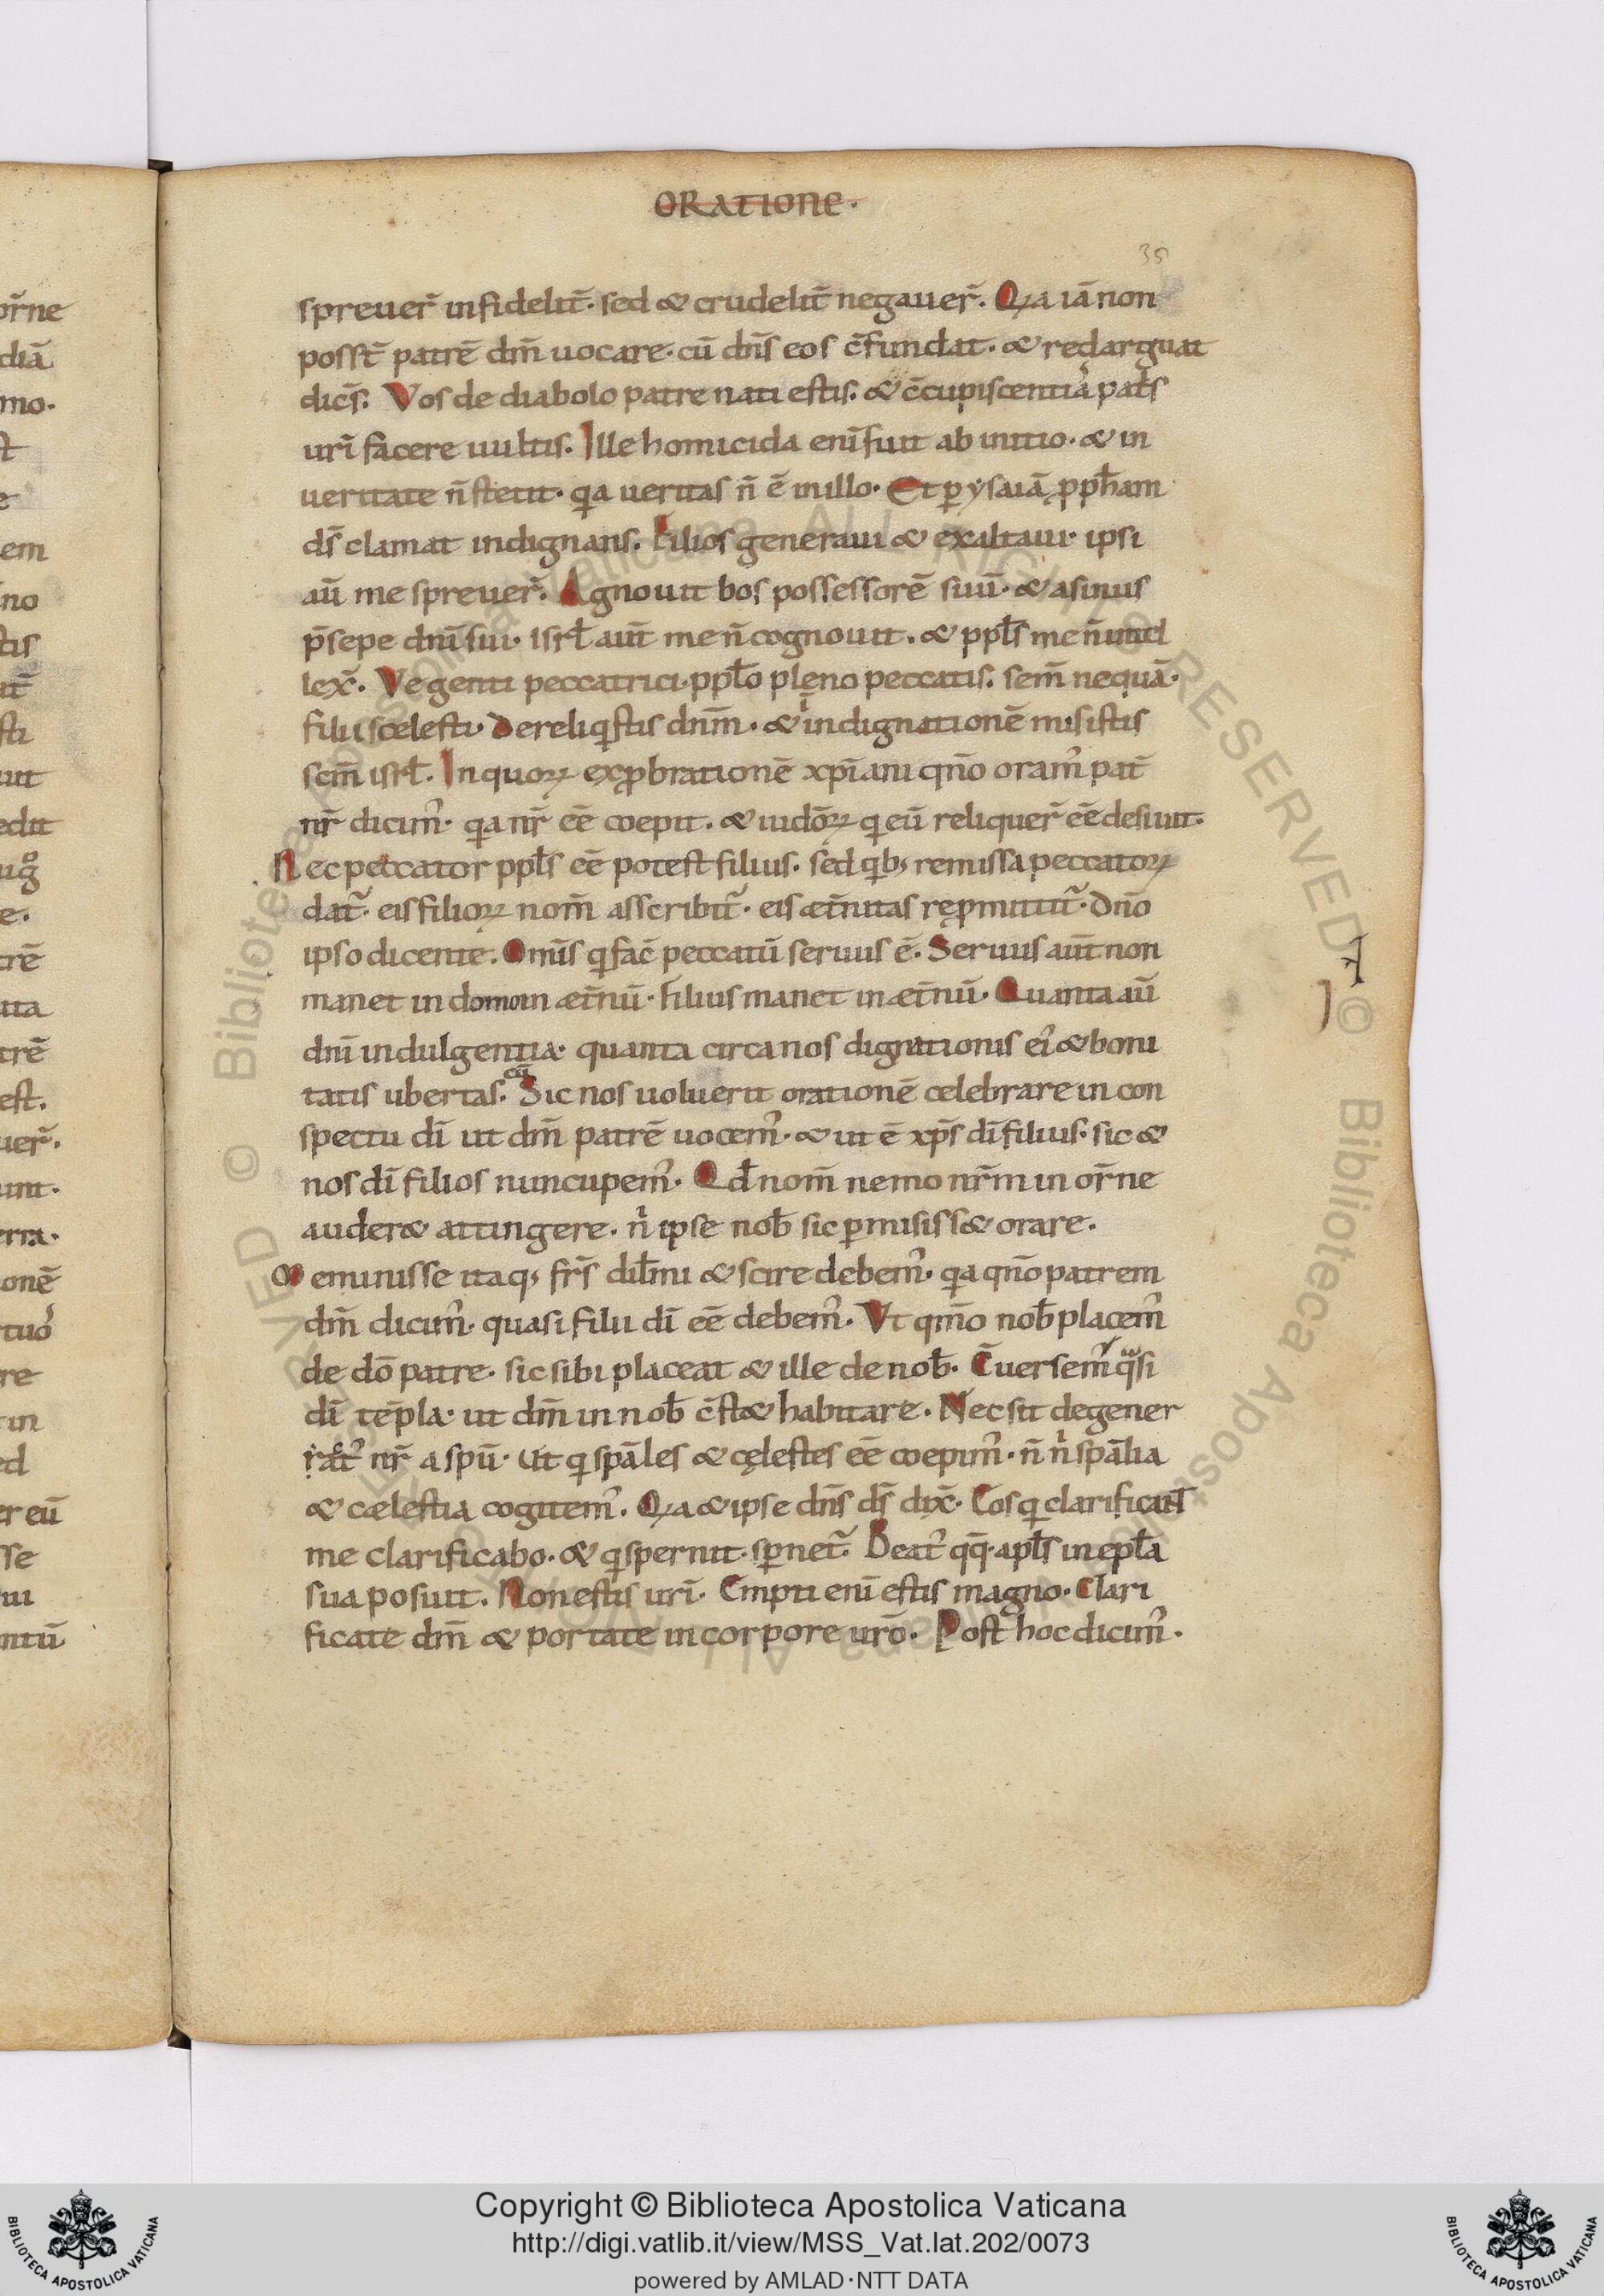 ORATIONE.
35
spreuer̄ infidelit̄. sed & crudelit̄ negauer̄. Q̵a iā non
posst̄ patrē dm̄ uocare. cū dn̄s eos c̄fundat. & redarguat
dic̄s. Vos de diabolo patre nati estis. & c̄cupiscentiā pat̄s
urī facere uultis. Ille homicida enī fuit ab initio. & in
ueritate n̄ stetit. qa ueritas n̄ ē in illo. Et p̱ ysaiā pph̄am
ds̄ clamat indignans. Filios generaui & exaltaui. ipsi
aū me spreuer̄. Agnouit bos possessorē suū. & asinus
p̄sepe dnī sui. isrł aut̄ me n̄ cognouit. & ppłs me n̄ intel
lex̄. Ve genti peccatrici. ppło pleno peccatis. sem̄ nequā.
filii scelesti. Dereliqstis dnm̄. & in indignationē misistis
scm̄ isrł. In quoꝝ exꝓbrationē xp̄iani qn̄o oram᾿ pat̄
nr̄ dicim᾿. qa nr̄ eē coepit. & iudōꝝ q eū reliquer̄ eē desiuit.
Nec peccator ppłs eē potest filius. sed qb; remissa peccatoꝝ
dat̄. eis filioꝝ nom̄ asscribit̄. eis æt̄nitas reꝓmittit̄. Dn̄o
ipso dicente. Omīs q fac̄ peccatū seruus ē. Seruus aut̄ non
manet in domo in æt̄nū. filius manet in æt̄nū. Quanta aū
dnī indulgentia. quanta circa nos dignationis ei᾿ & boni
cū
tatis ubertas. Sic nos uoluerit orationē celebrare in con
spectu dī ut dm̄ patrē uocem᾿. & ut ē xp̄s dī filius. sic &
nos dī filios nuncupem᾿. Qd̄ nom̄ nemo nr̄m in or̄ne
auder& attingere. nⁱ ipse nob̄ sic p̱misiss& orare.
Meminisse itaq; fr̄s dił̄mi & scire debem᾿. qa qn̄o patrem
dm̄ dicim᾿. quasi filii dī eē debem᾿. Vt qm̄o nob̄ placem᾿
de dō patre. sic sibi placeat & ille de nob̄. C̄uersem᾿ qͣsi
dī tēpla. ut dm̄ in nob̄ c̄st& habitare. Nec sit degener
 nr̄ a spū. Ut q spāles & cęlestes eē coepim᾿. n̄ nⁱ spālia
& cælestia cogitem᾿. Q̵a & ipse dn̄s ds̄ dix̄. Eos q clarificant
me clarificabo. & q spernit. sp̱net̄. Beat᾿ qq̄. apłs in epła
sua posuit. Non estis urī. Empti enī estis magno. Clari
ficate dm̄ & portate in corpore urō. Post hoc dicim᾿.
Copyright © Biblioteca Apostolica Vaticana
http://digi.vatlib.it/view/MSS_Vat.lat.202/0073
powered by AMLAD·NTT DATA